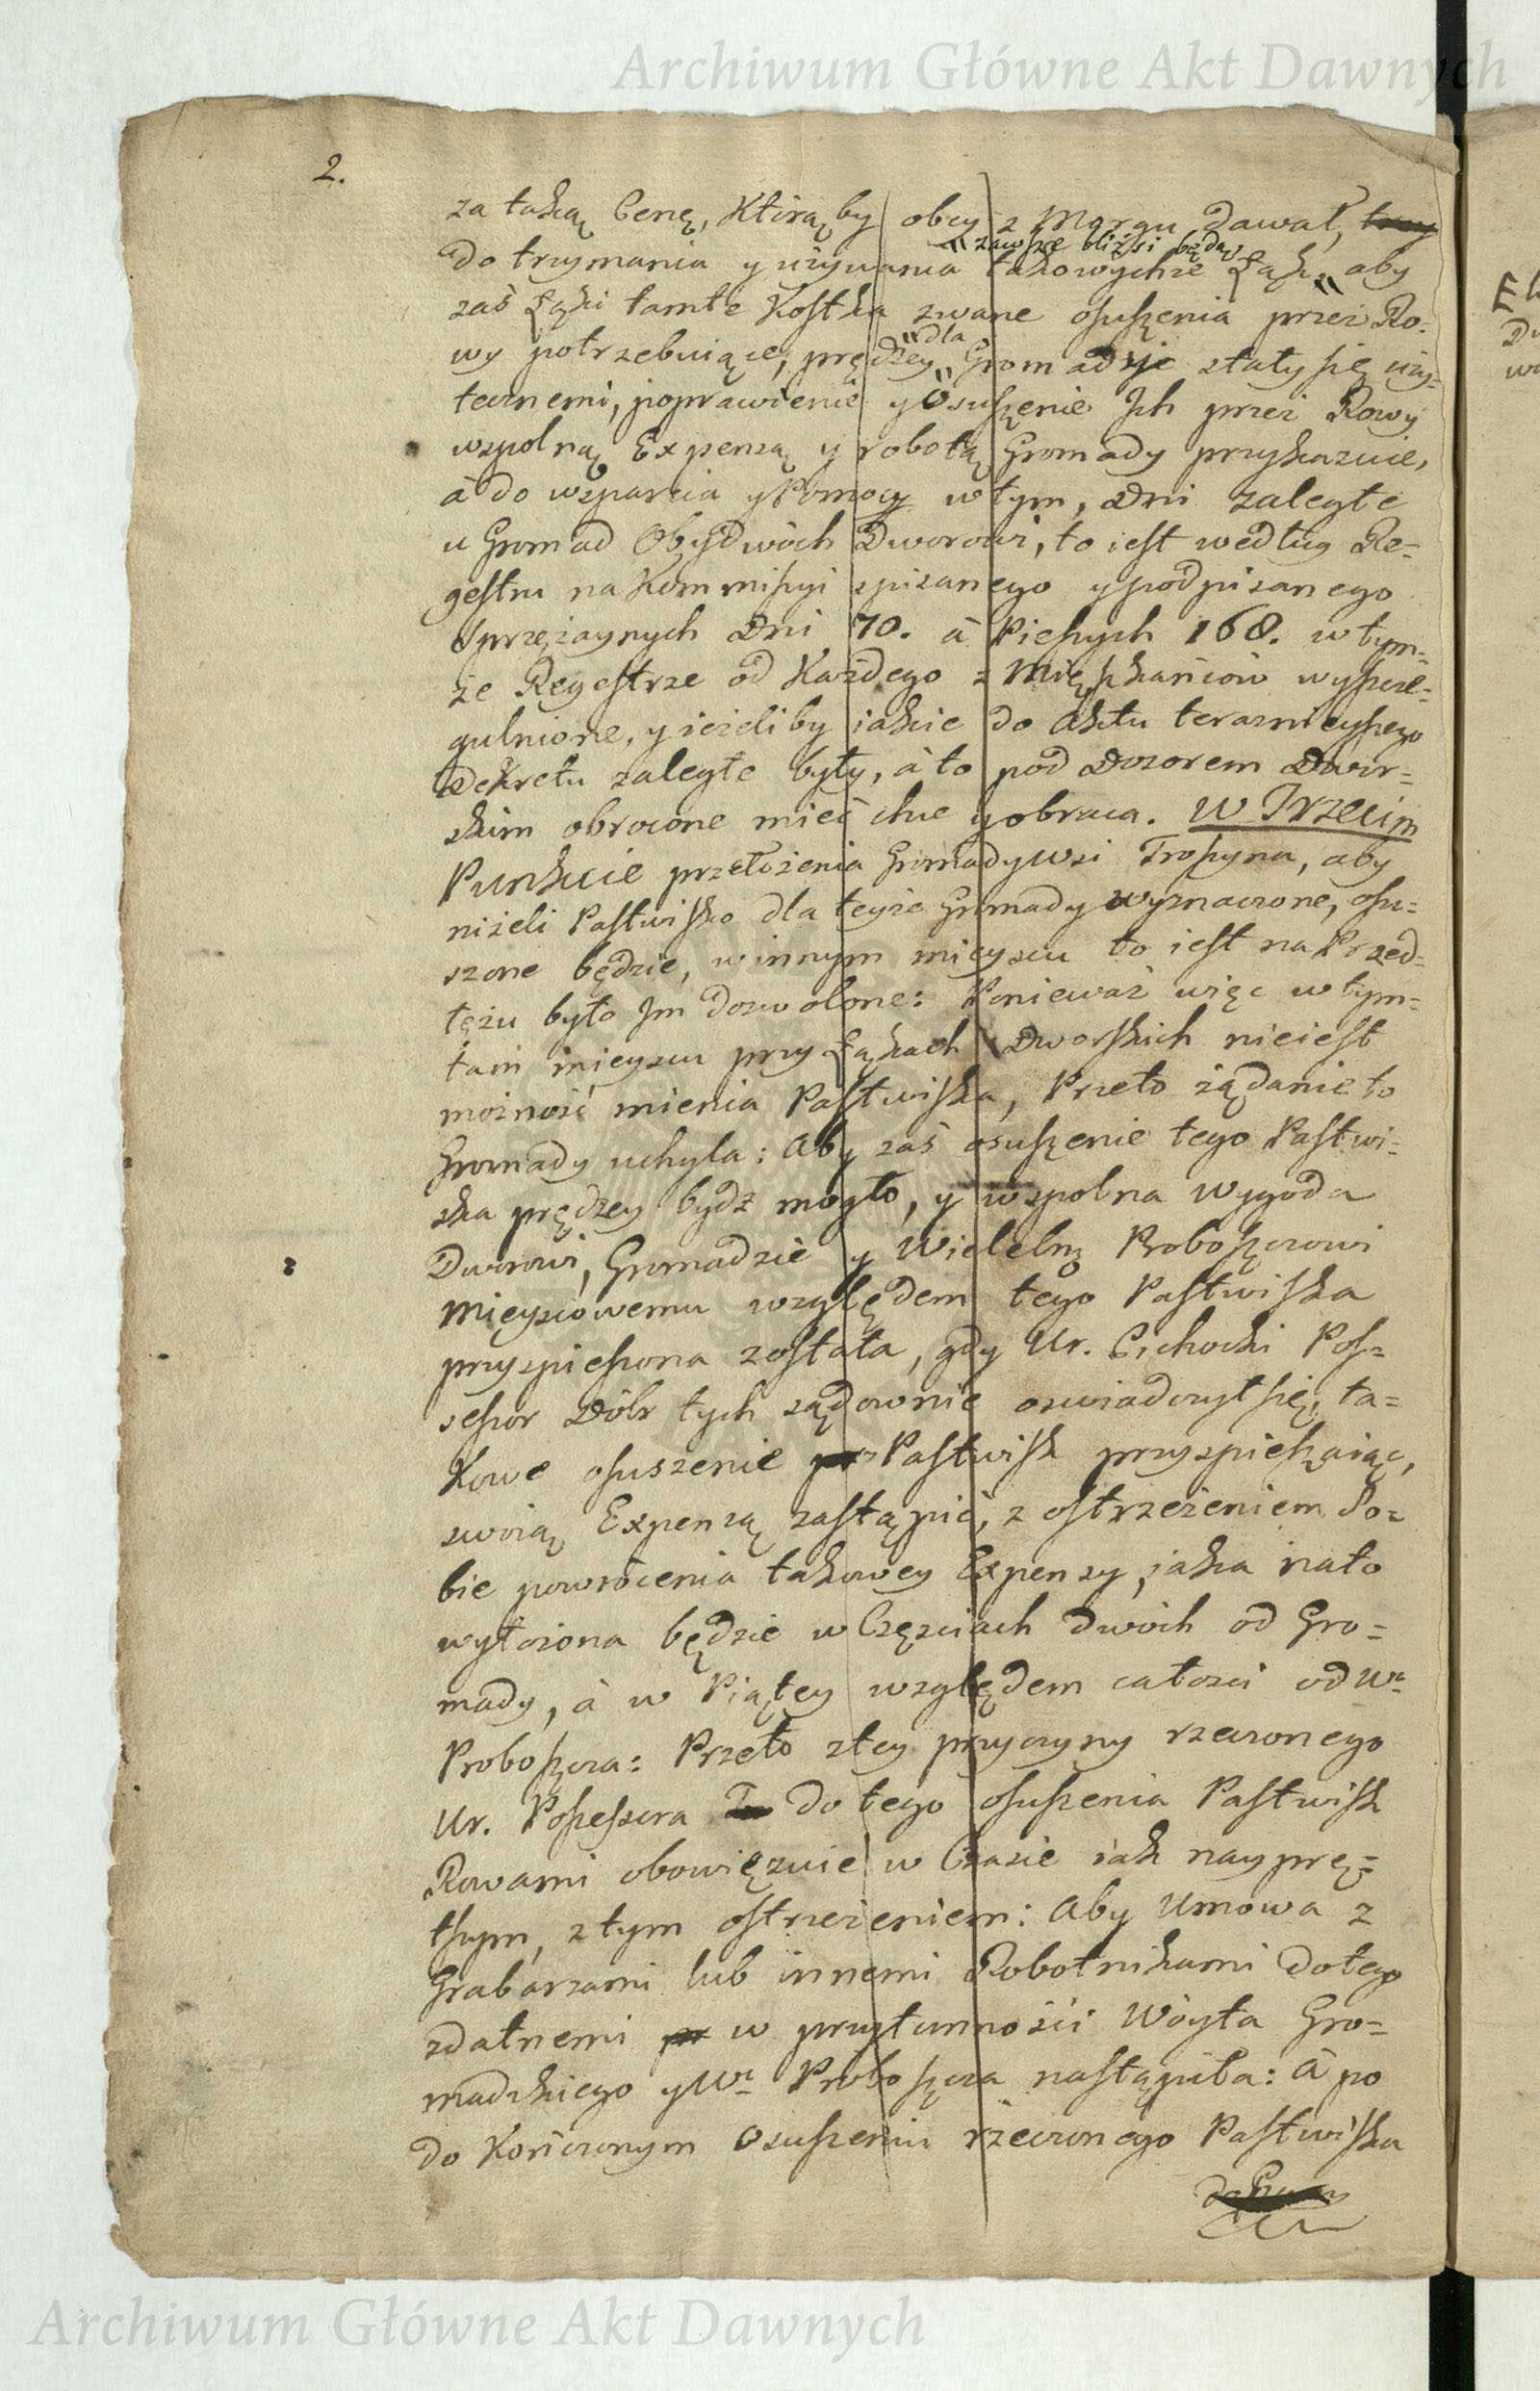 Archiwum Główne Akt Dawnych
2.
za taką Cenę, którąby obcy z Morgu dawał,
zawsze bliżsi będą
do trzymania y używania takowychże Łąk, aby
zaś Łąki tamte Kostka zwane osuszenia przez Ro-
dla
wy potrzebuiące, prędzey Gromadzie stały się uży-
tecznemi, poprawienie y Osuszenie Jch przez Rowy
wspolną Expensą y robotą Gromady przykazuie,
à do wsparcia y Pomocy w tym, Dni zaległe
u Gromad Obydwóch Dworowi, to iest według Re-
gestru na Kommissyi spisanego y podpisanego
Sprzężaynych Dni 70. à Pieszych 168. w tym-
że Regestrze od Każdego z Mięszkańców wyszcze-
gulnione, y ieżeliby iakie do Aktu teraznieyszego
Dekretu zaległe były, à to pod Dozorem Dwor-
skim obrocone mieć chce y obraca. W Trzecim
Punkcie przełożenia Gromady wsi Troszyna, aby
niżeli Pastwisko dla teyże Gromady wyznaczone, osu-
szone będzie, w innym mieyscu to iest na Przed-
tężu było Jm dozwolone: Ponieważ więc w tym-
tam mieyscu przy Łąkach Dworskich nieiest
możność mienia Pastwiska, Przeto żądanie to
Gromady uchyla: Aby zaś osuszenie tego Pastwi-
ska prędzey bydź mogło, y wspolna wygoda
Dworowi, Gromadzie y Wielebnᵒ Proboszczowi
Mieyscowemu względem tego Pastwiska
przyspieszona została, gdy Ur. Cichocki Pos-
sessor Dóbr tych sądownie oswiadczył się, ta-
kowe osuszenie Pastwisk przyspieszaiąc,
swoią Expensą zastąpić, z ostrzeżeniem So-
bie powrócenia takowey Expensy, iaka nato
wyłożona będzie w Częsciach dwóch od Gro-
mady, à w Piątey względem całosci od Wᵒ
Proboszcza: Przeto ztey przyczyny rzeczonego
Ur. Possessora do tego osuszenia Pastwisk
Rowami obowięzuie w Czasie iak nayprę-
tszym, z tym ostrzeżeniem: Aby Umowa z
Grabarzami lub innemi Robotnikami dotego
zdatnemi w przytomności Wóyta Gro-
madzkiego y Wᵒ Proboszcza nastąpiła: à po
do Kończonym Osuszeniu rzeczonego Pastwiska
Archiwum Główne Akt Dawnych